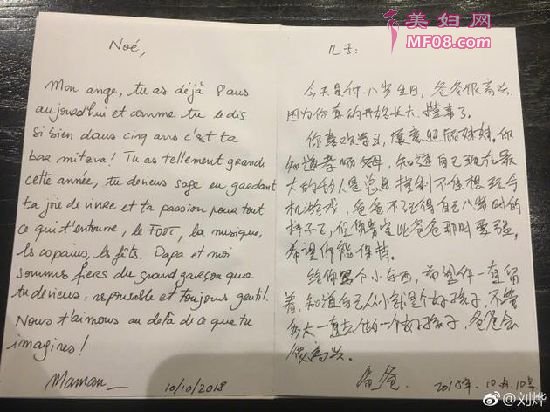 美妇网
MF08.com
Noé,
Mon ange, tu as déjà 8 ans
aujourd'hui et comme tu le dis
si bien dans cinq ans c'est ta
bar mitzva! Tu as tellement grandi
cette année, tu deviens sage en gardant
ta joie de vivre et ta passion pour tout
ce qui t'entraine, le FOOT, la musique,
les copains, les fêtes. Papa et moi
sommes fiers du grand garçon que
tu deviens, responsable et toujours gentil!
Nous t'aimons au delà de ce que tu
imagines!
Maman_ 10/10/2018
今天是你八岁生日,爸爸很高兴
因为你真的开始长大,懂事了。
你喜欢学习,懂意照顾妹妹,你
知道孝顺父母,知道自己现在最
大的敌人是总是控制不住想玩手
机游戏,爸爸不记得自己八岁时的
样子了,但你肯定比爸爸那时要强。
希望你能保持。
给你写个小东西,希望你一直留
着,知道自己从小就是个好孩子,不管
多大一直去做一个好孩子,爸爸会
很高兴。
爸爸 2018年.10月10号
@刘烨